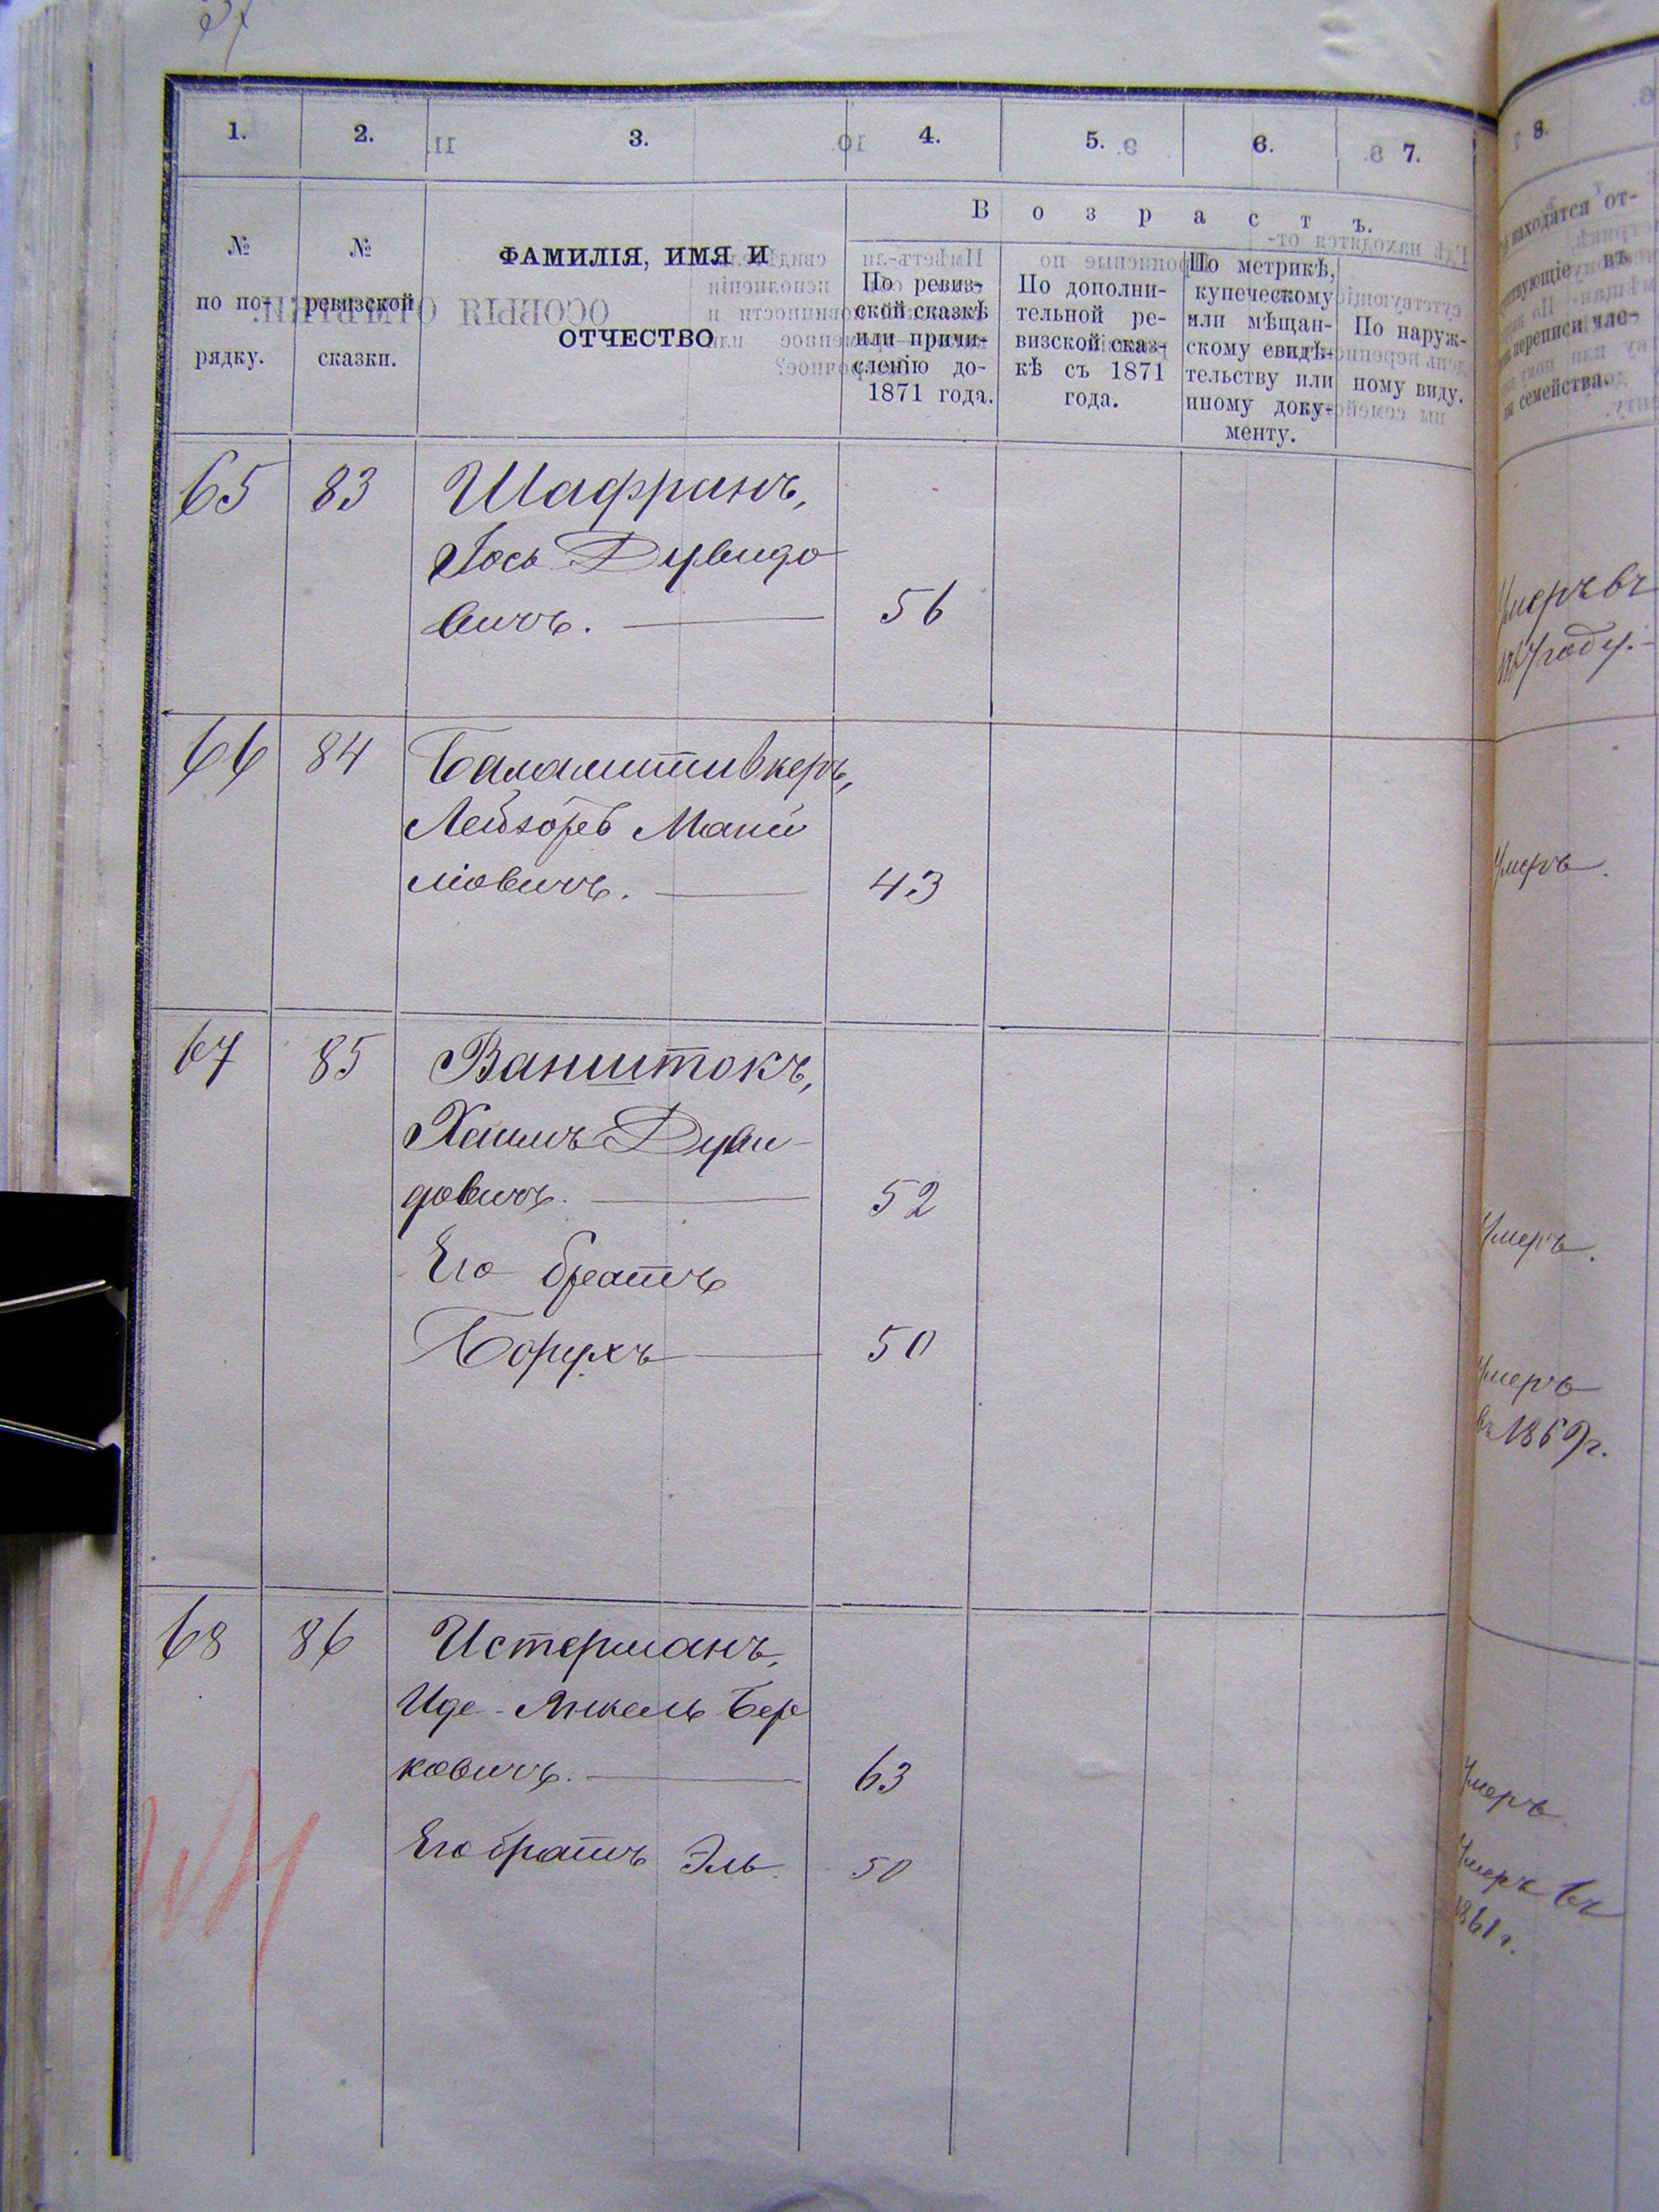 1.
2.
3.
4.
5.
6.
7.
8.
№
по по-
рядку.
№
ревизской
сказки.
ФАМИЛІЯ, ИМЯ И
ОТЧЕСТВО
Возрастъ.
По ревиз-
ской сказкѣ
или причи-
сленію до-
1871 года.
По дополни-
тельной ре-
визской сказ-
кѣ съ 1871
года.
По метрикѣ,
купеческому
или мѣщан-
скому свидѣ-
тельству или
иному доку-
менту.
По наруж-
ному виду.
находятся от-
въ
переписи чле-
семейства.
65 83 Шафранъ,
Іось Дувидо
вичъ. 56
Умеръ въ
году.
66 84 Балаштивкеръ,
Лейзоръ Мани
ліовичъ. 43
Умеръ.
67 85 Ванштокъ,
Хаимъ Дуви-
довичъ. 52
Умеръ.
Его братъ
Борухъ 50
Умеръ
въ 1869 г.
68 86 Истерманъ,
Иде-Янкель Бер
ковичъ. 63
Умеръ
Его братъ Эль 50
Умеръ въ
1861 г.